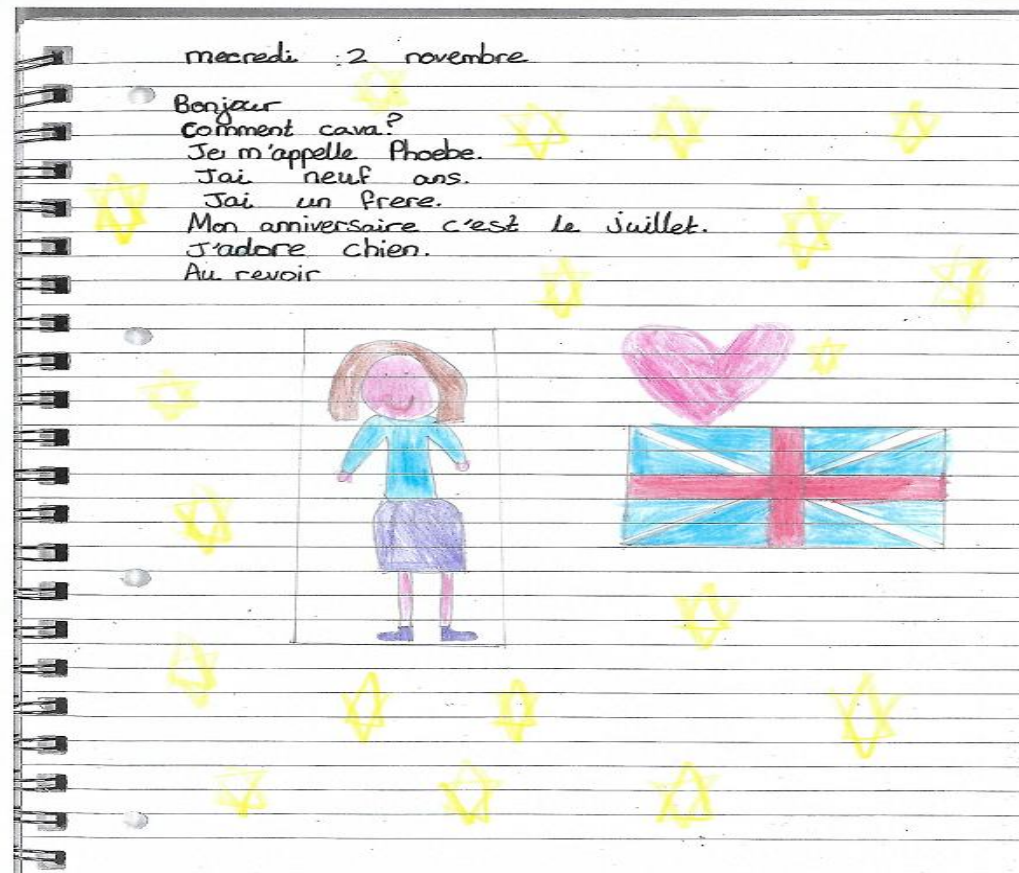 mecredi :2 novembre
Bonjour
comment cava?
Je m'appelle Phoebe.
Jai neuf ans.
Jai un frere.
Mon anniversaire c'est le juillet.
J'adore chien.
Au revoir